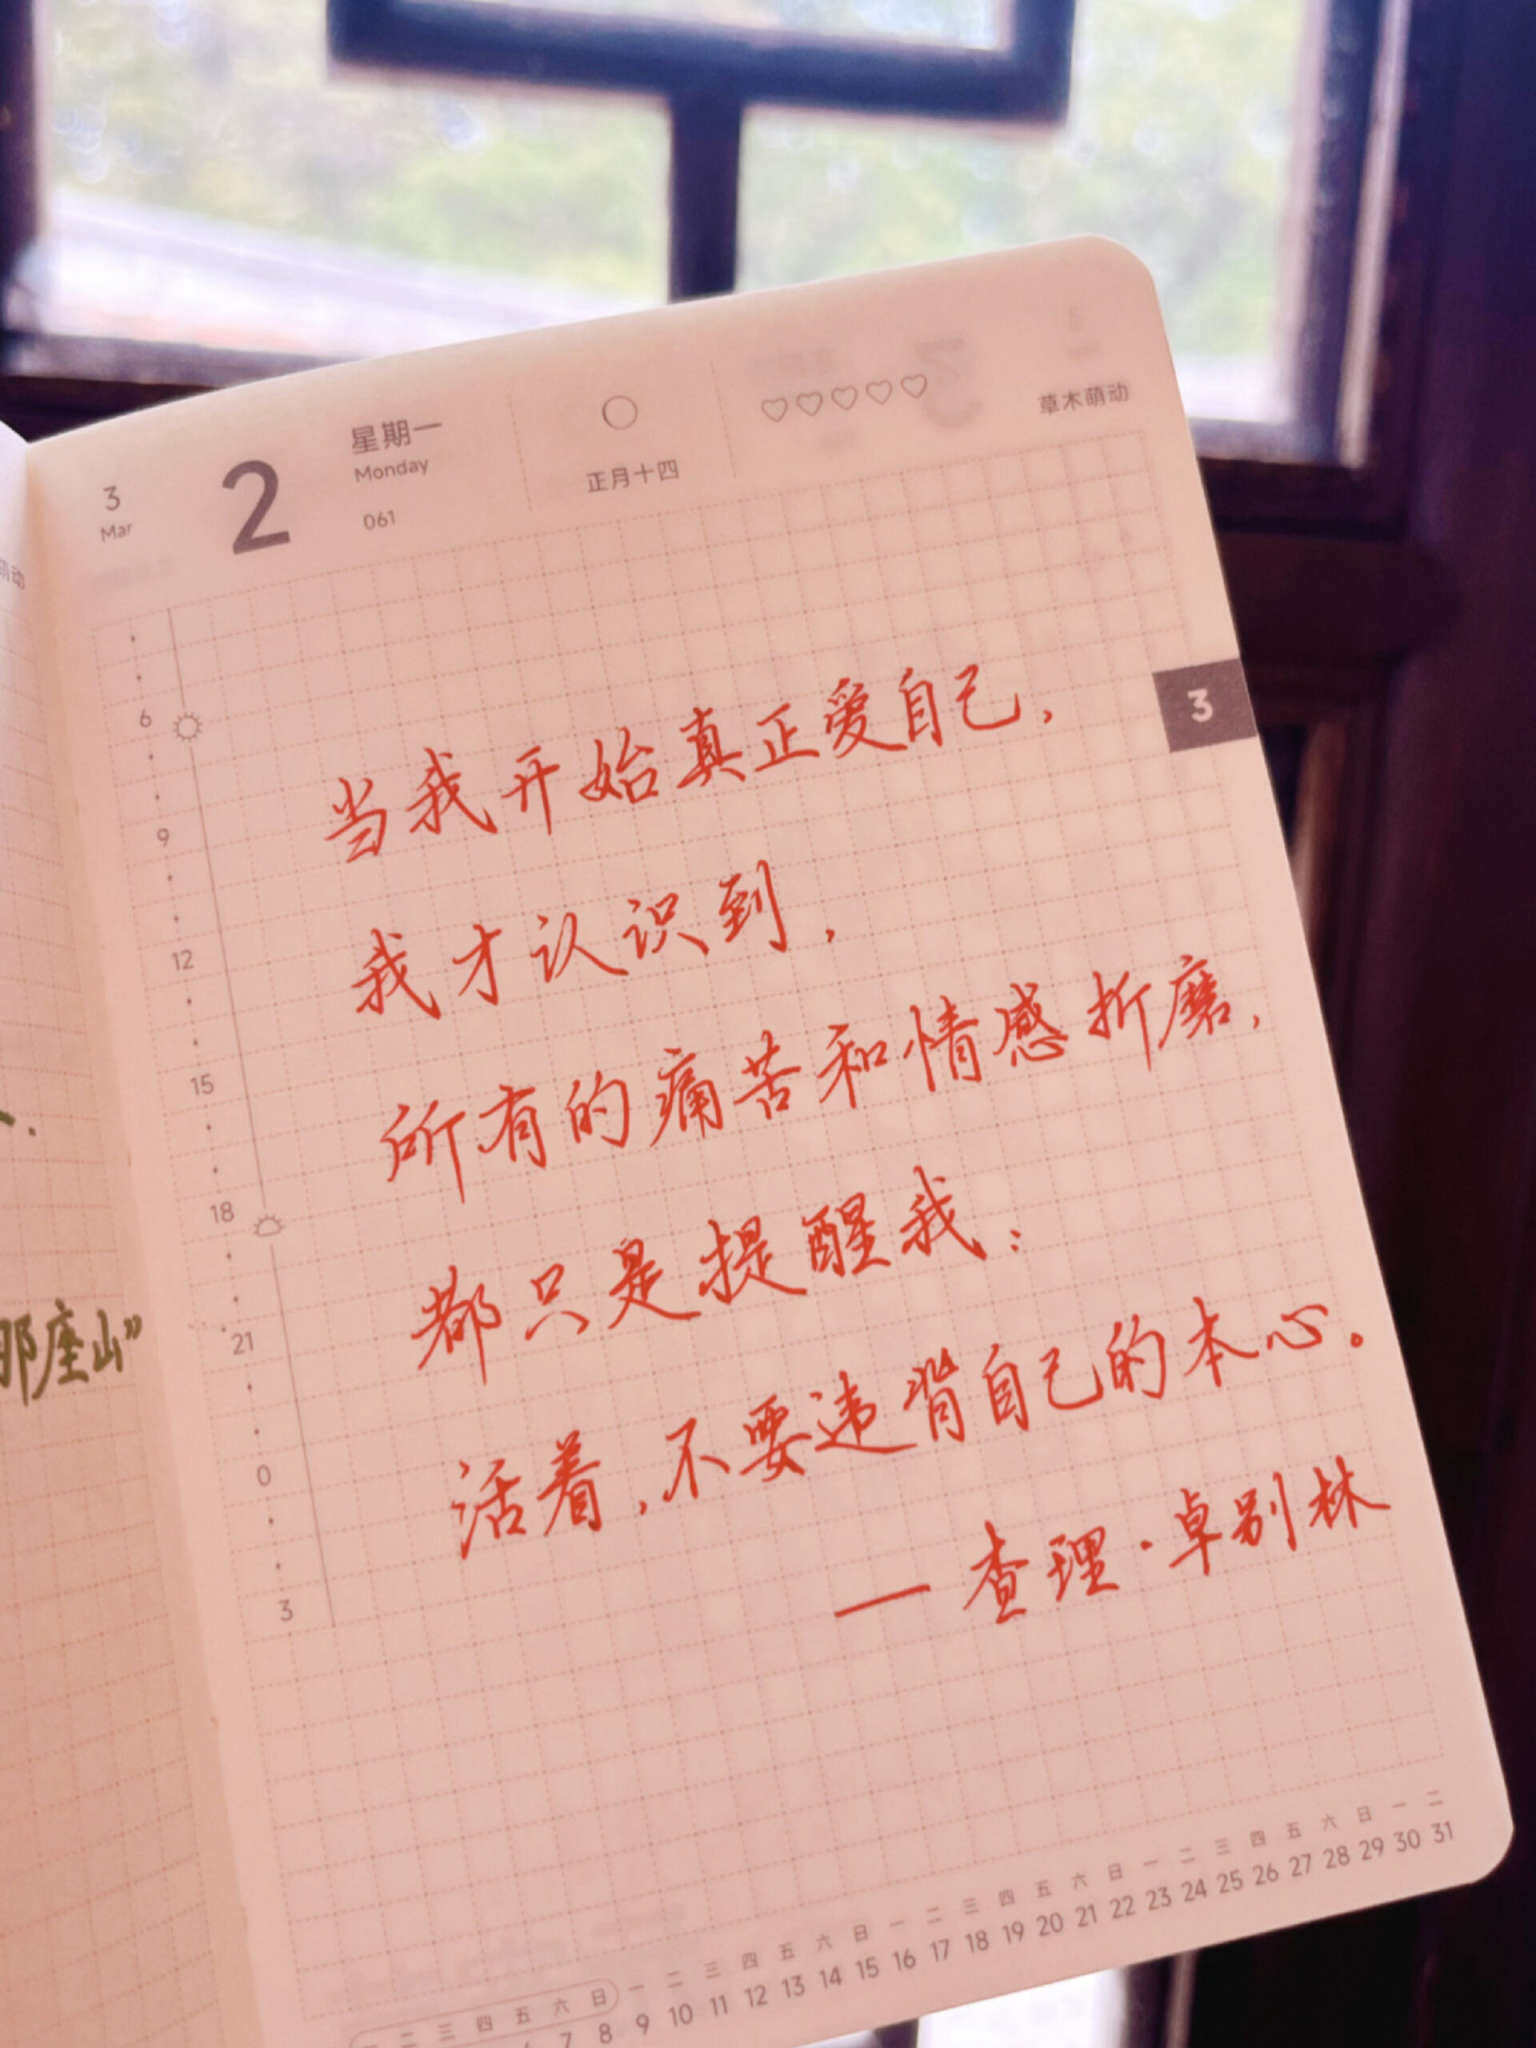 3
Mar
2
星期一
Monday
061
正月十四
草木萌动
3
6
9
12
15
18
21
0
3
当我开始真正爱自己，
我才认识到，
所有的痛苦和情感折磨，
都只是提醒我：
活着，不要违背自己的本心。
— 查理·卓别林
那座山”
萌动
一 二 三 四 五 六 日 一 二 三 四 五 六 日 一 二 三 四 五 六 日 一 二 三 四 五 六 日 一 二
7 8 9 10 11 12 13 14 15 16 17 18 19 20 21 22 23 24 25 26 27 28 29 30 31